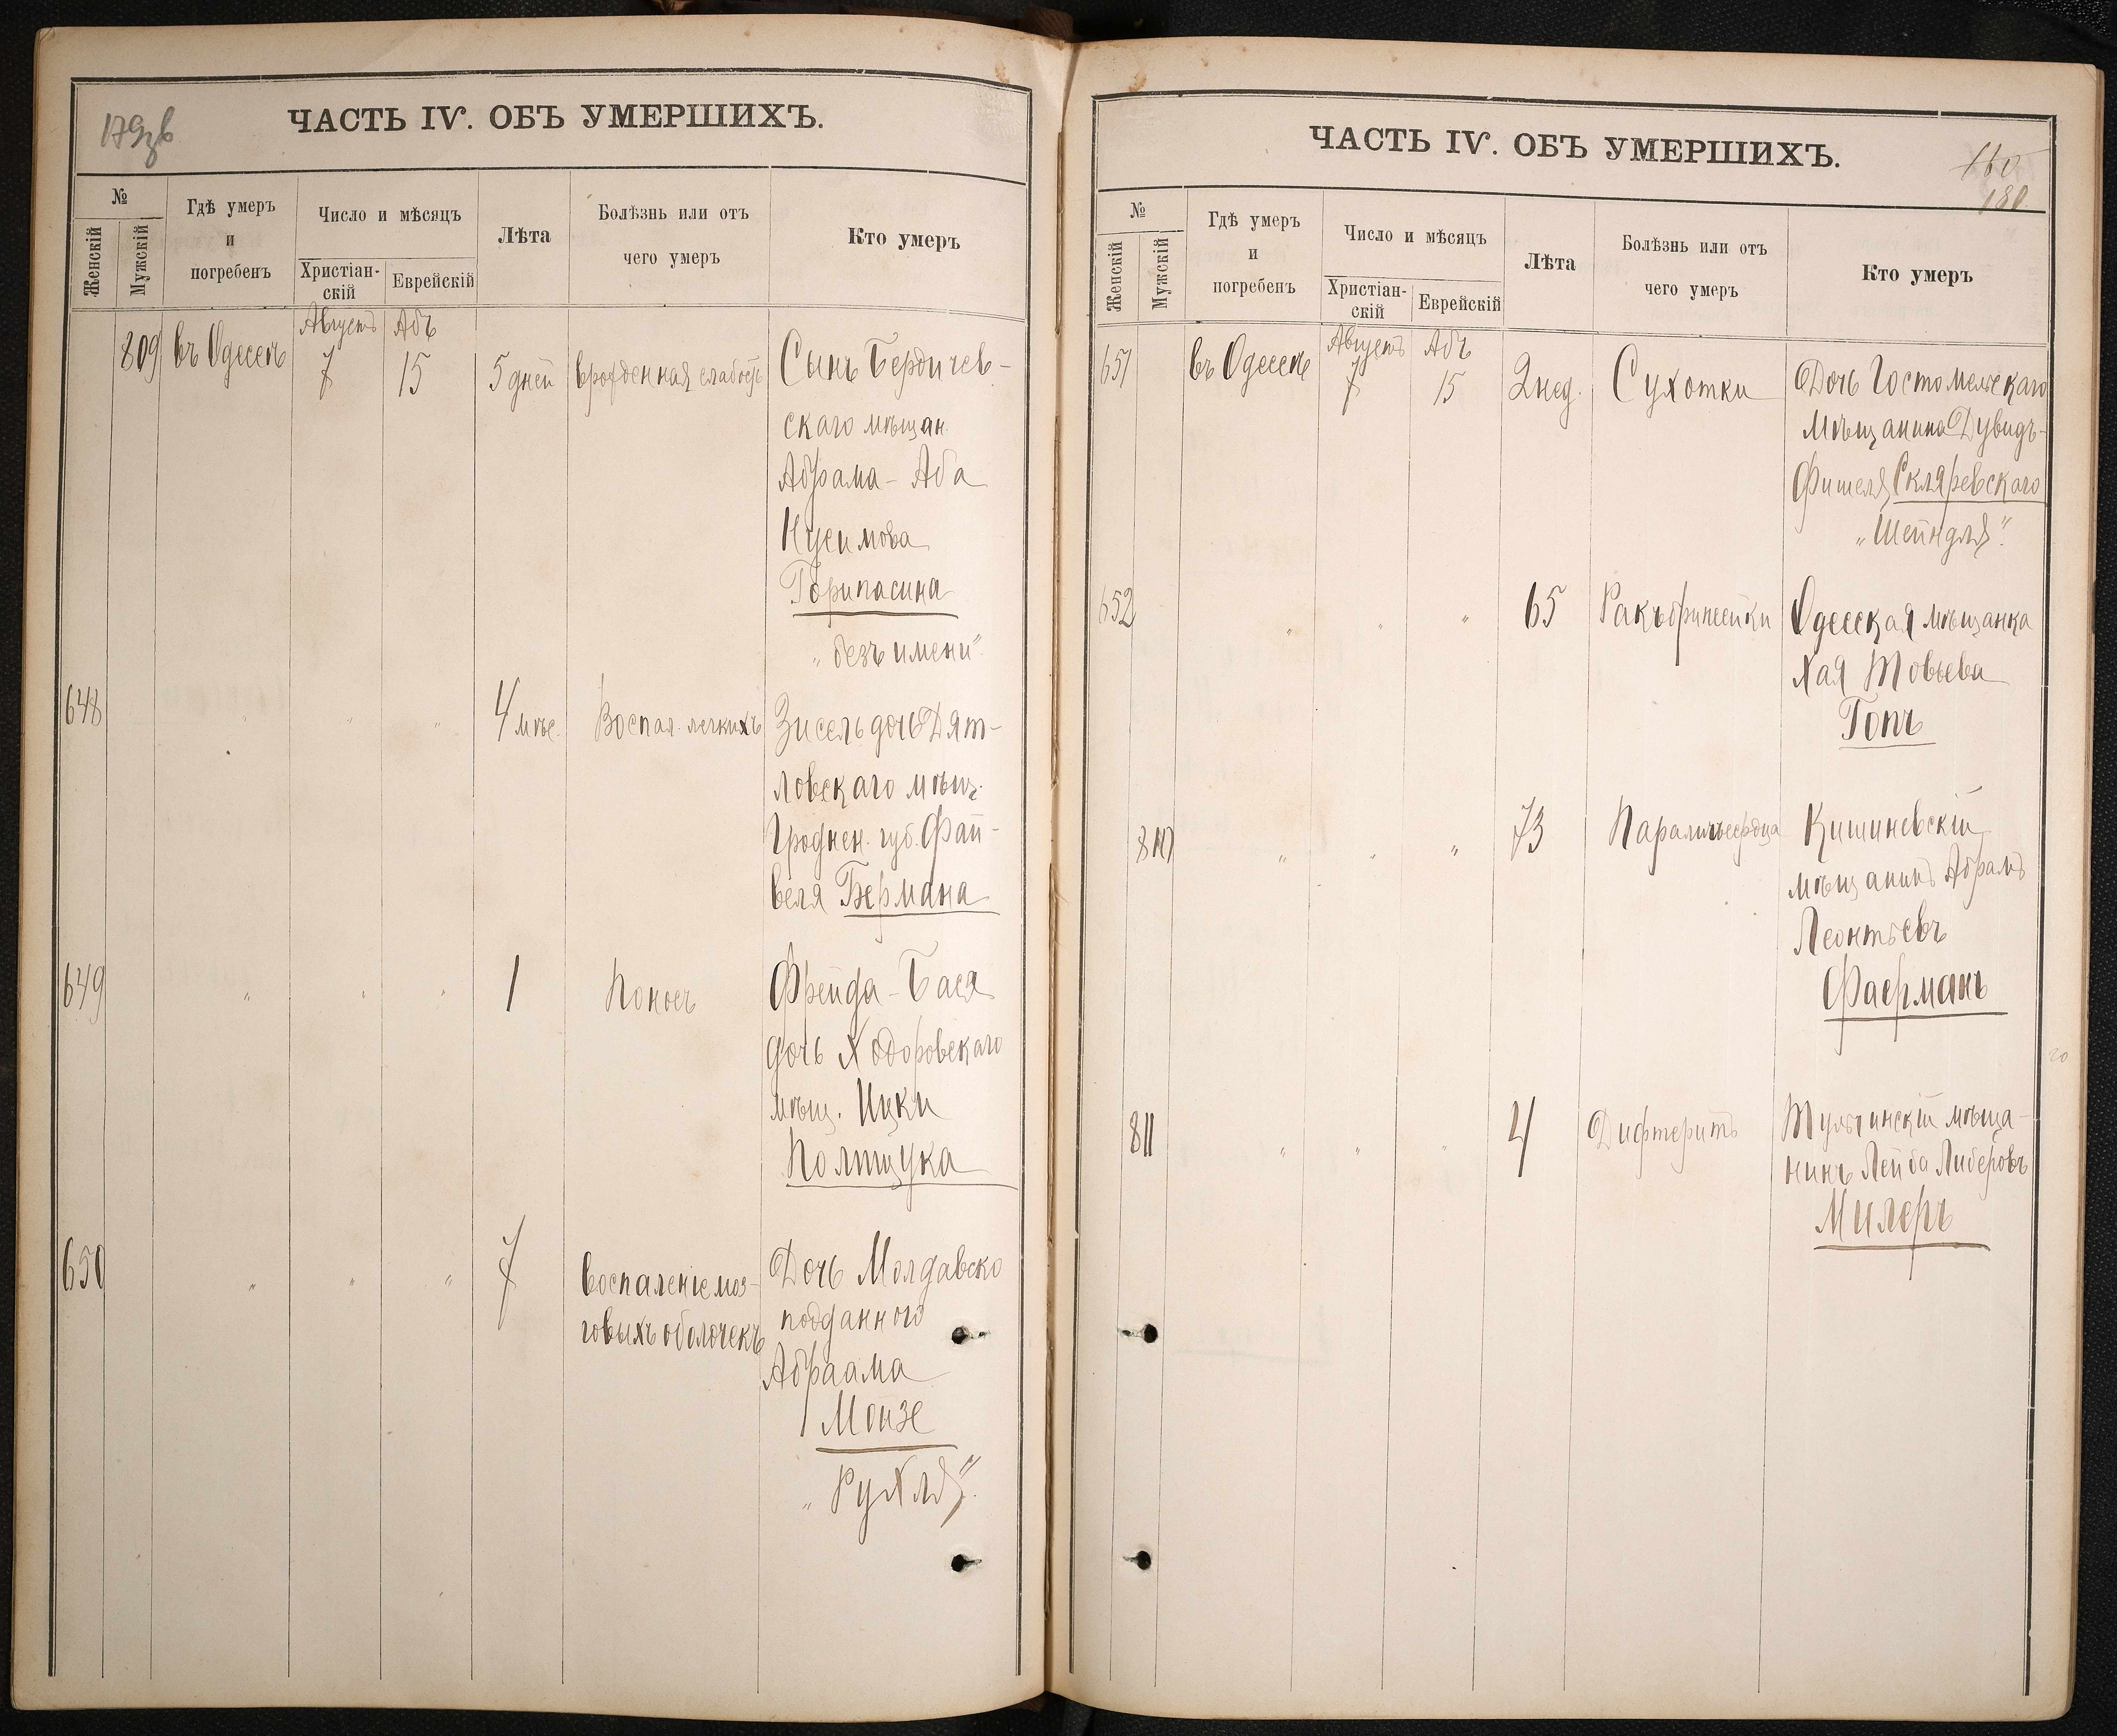 179зв
ЧАСТЬ IV. ОБЪ УМЕРШИХЪ.
№
Женскій
Мужскій
Гдѣ умеръ
и
погребенъ
Число и мѣсяцъ
Христіан-
скій
Еврейскій
Лѣта
Болѣзнь или отъ
чего умеръ
Кто умеръ
Августъ Абъ
809 въ Одессѣ 7 15 5 дней врожденная слабость Сынъ Бердичев-
скаго мѣщан.
Абрама - Аба
Нусимова
"безъ имени".
648 " " " 4 мѣс. Воспал. легкихъ Зисель дочь Дят-
ловскаго мѣщ.
Гроднен. губ. Фай-
веля Бермана
649 " " " 1 Поносъ Фрейда - Бася
дочь Ходоровскаго
мѣщ. Ицки
Полищука
650 " " " 7 воспаленіе моз-
говыхъ оболочекъ
Дочь Молдавско
подданного
Абраама
Монзе
"Рухля".
ЧАСТЬ IV. ОБЪ УМЕРШИХЪ.
160
180
№
Женскій
Мужскій
Гдѣ умеръ
и
погребенъ
Число и мѣсяцъ
Христіан-
скій
Еврейскій
Лѣта
Болѣзнь или отъ
чего умеръ
Кто умеръ
Августъ Абъ
651 въ Одессѣ 7 15 2 нед. Сухотки Дочь Гостомельскаго
мѣщанина Дувидъ-
Фишеля Скляревскаго
"Шейндля".
652 " " " 65 Ракъ Одесская мѣщанка
Хая Товьева
Гопъ
810 " " " 73 Параличъ сердца Кишиневскій
мѣщанинъ Абрамъ
Леонтьевъ
Фаерманъ
811 " " " 4 Дифтеритъ Тульчинскій мѣща-
нинъ Лейба Либеровъ
Милеръ